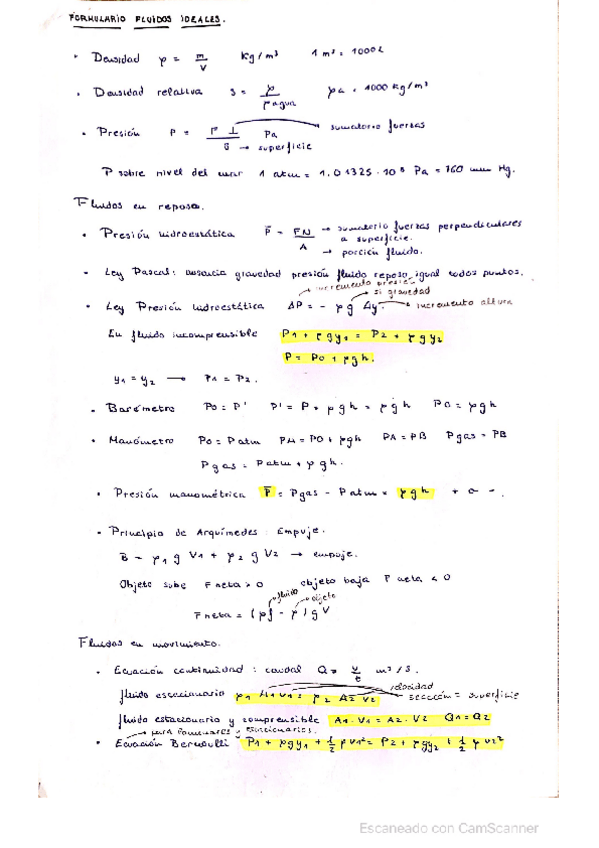 FORMULARIO FLUIDOS IDEALES.
· Densidad ρ = m/V kg/m³ 1 m³ = 1000 l
· Densidad relativa S = ρ/ρagua ρa = 1000 kg/m³
· Presión P = F⊥/S Pa → sumatorio fuerzas
→ superficie
P sobre nivel del mar 1 atm = 1.01325 · 10⁵ Pa = 760 mm Hg.
Fluidos en reposo.
· Presión hidroestática P̄ = FN/A → sumatorio fuerzas perpendiculares
a superficie.
→ porción fluido.
· Ley Pascal: ausencia gravedad presión fluido reposo igual todos puntos.
→ incremento presión → si gravedad
· Ley Presión hidroestática ΔP = - ρg Δy. → incremento altura
En fluido incomprensible P1 + ρgy1 = P2 + ρgy2
P = P0 + ρgh.
y1 = y2 → P1 = P2.
· Barómetro P0 = P' P' = P + ρgh = ρgh P0 = ρgh
· Manómetro P0 = Patm PA = P0 + ρgh PA = PB Pgas = PB
Pgas = Patm + ρgh.
· Presión manométrica P̄ = Pgas - Patm = ρgh + o -.
· Principio de Arquímedes: Empuje.
B = ρ1 g V1 + ρ2 g V2 → empuje.
Objeto sube Fneta > 0 objeto baja Fneta < 0
→ fluido → objeto
Fneta = (ρf - ρ) g V
Fluidos en movimiento.
· Ecuación continuidad: caudal Q = V/t m³/s.
velocidad
fluido estacionario ρ1 A1 v1 = ρ2 A2 v2 sección = superficie
fluido estacionario y comprensible A1 · V1 = A2 · V2 Q1 = Q2
→ para laminares y estacionarios.
· Ecuación Bernoulli P1 + ρgy1 + 1/2 ρv1² = P2 + ρgy2 + 1/2 ρv2²
Escaneado con CamScanner